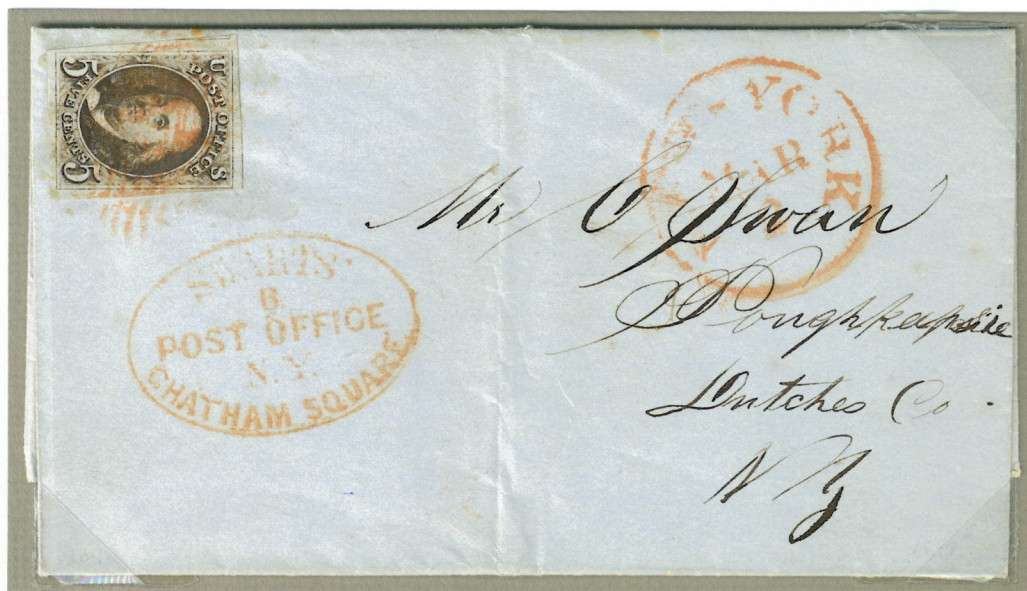 U S
POST OFFICE
FIVE CENTS
5 5
SWARTS'
B.
POST OFFICE
N.Y.
CHATHAM SQUARE
YORK
MAR
Mr C Swan
Poughkeepsie
Dutches Co.
N Y